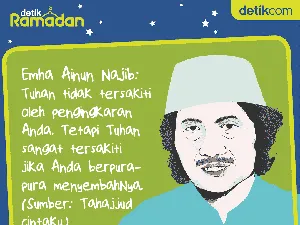 detik
Ramadan
detikcom
Emha Ainun Najib:
Tuhan tidak tersakiti
oleh pengingkaran
Anda. Tetapi Tuhan
sangat tersakiti
jika Anda berpura-
pura menyembahNya
(Sumber: Tahajjud
cintaku)